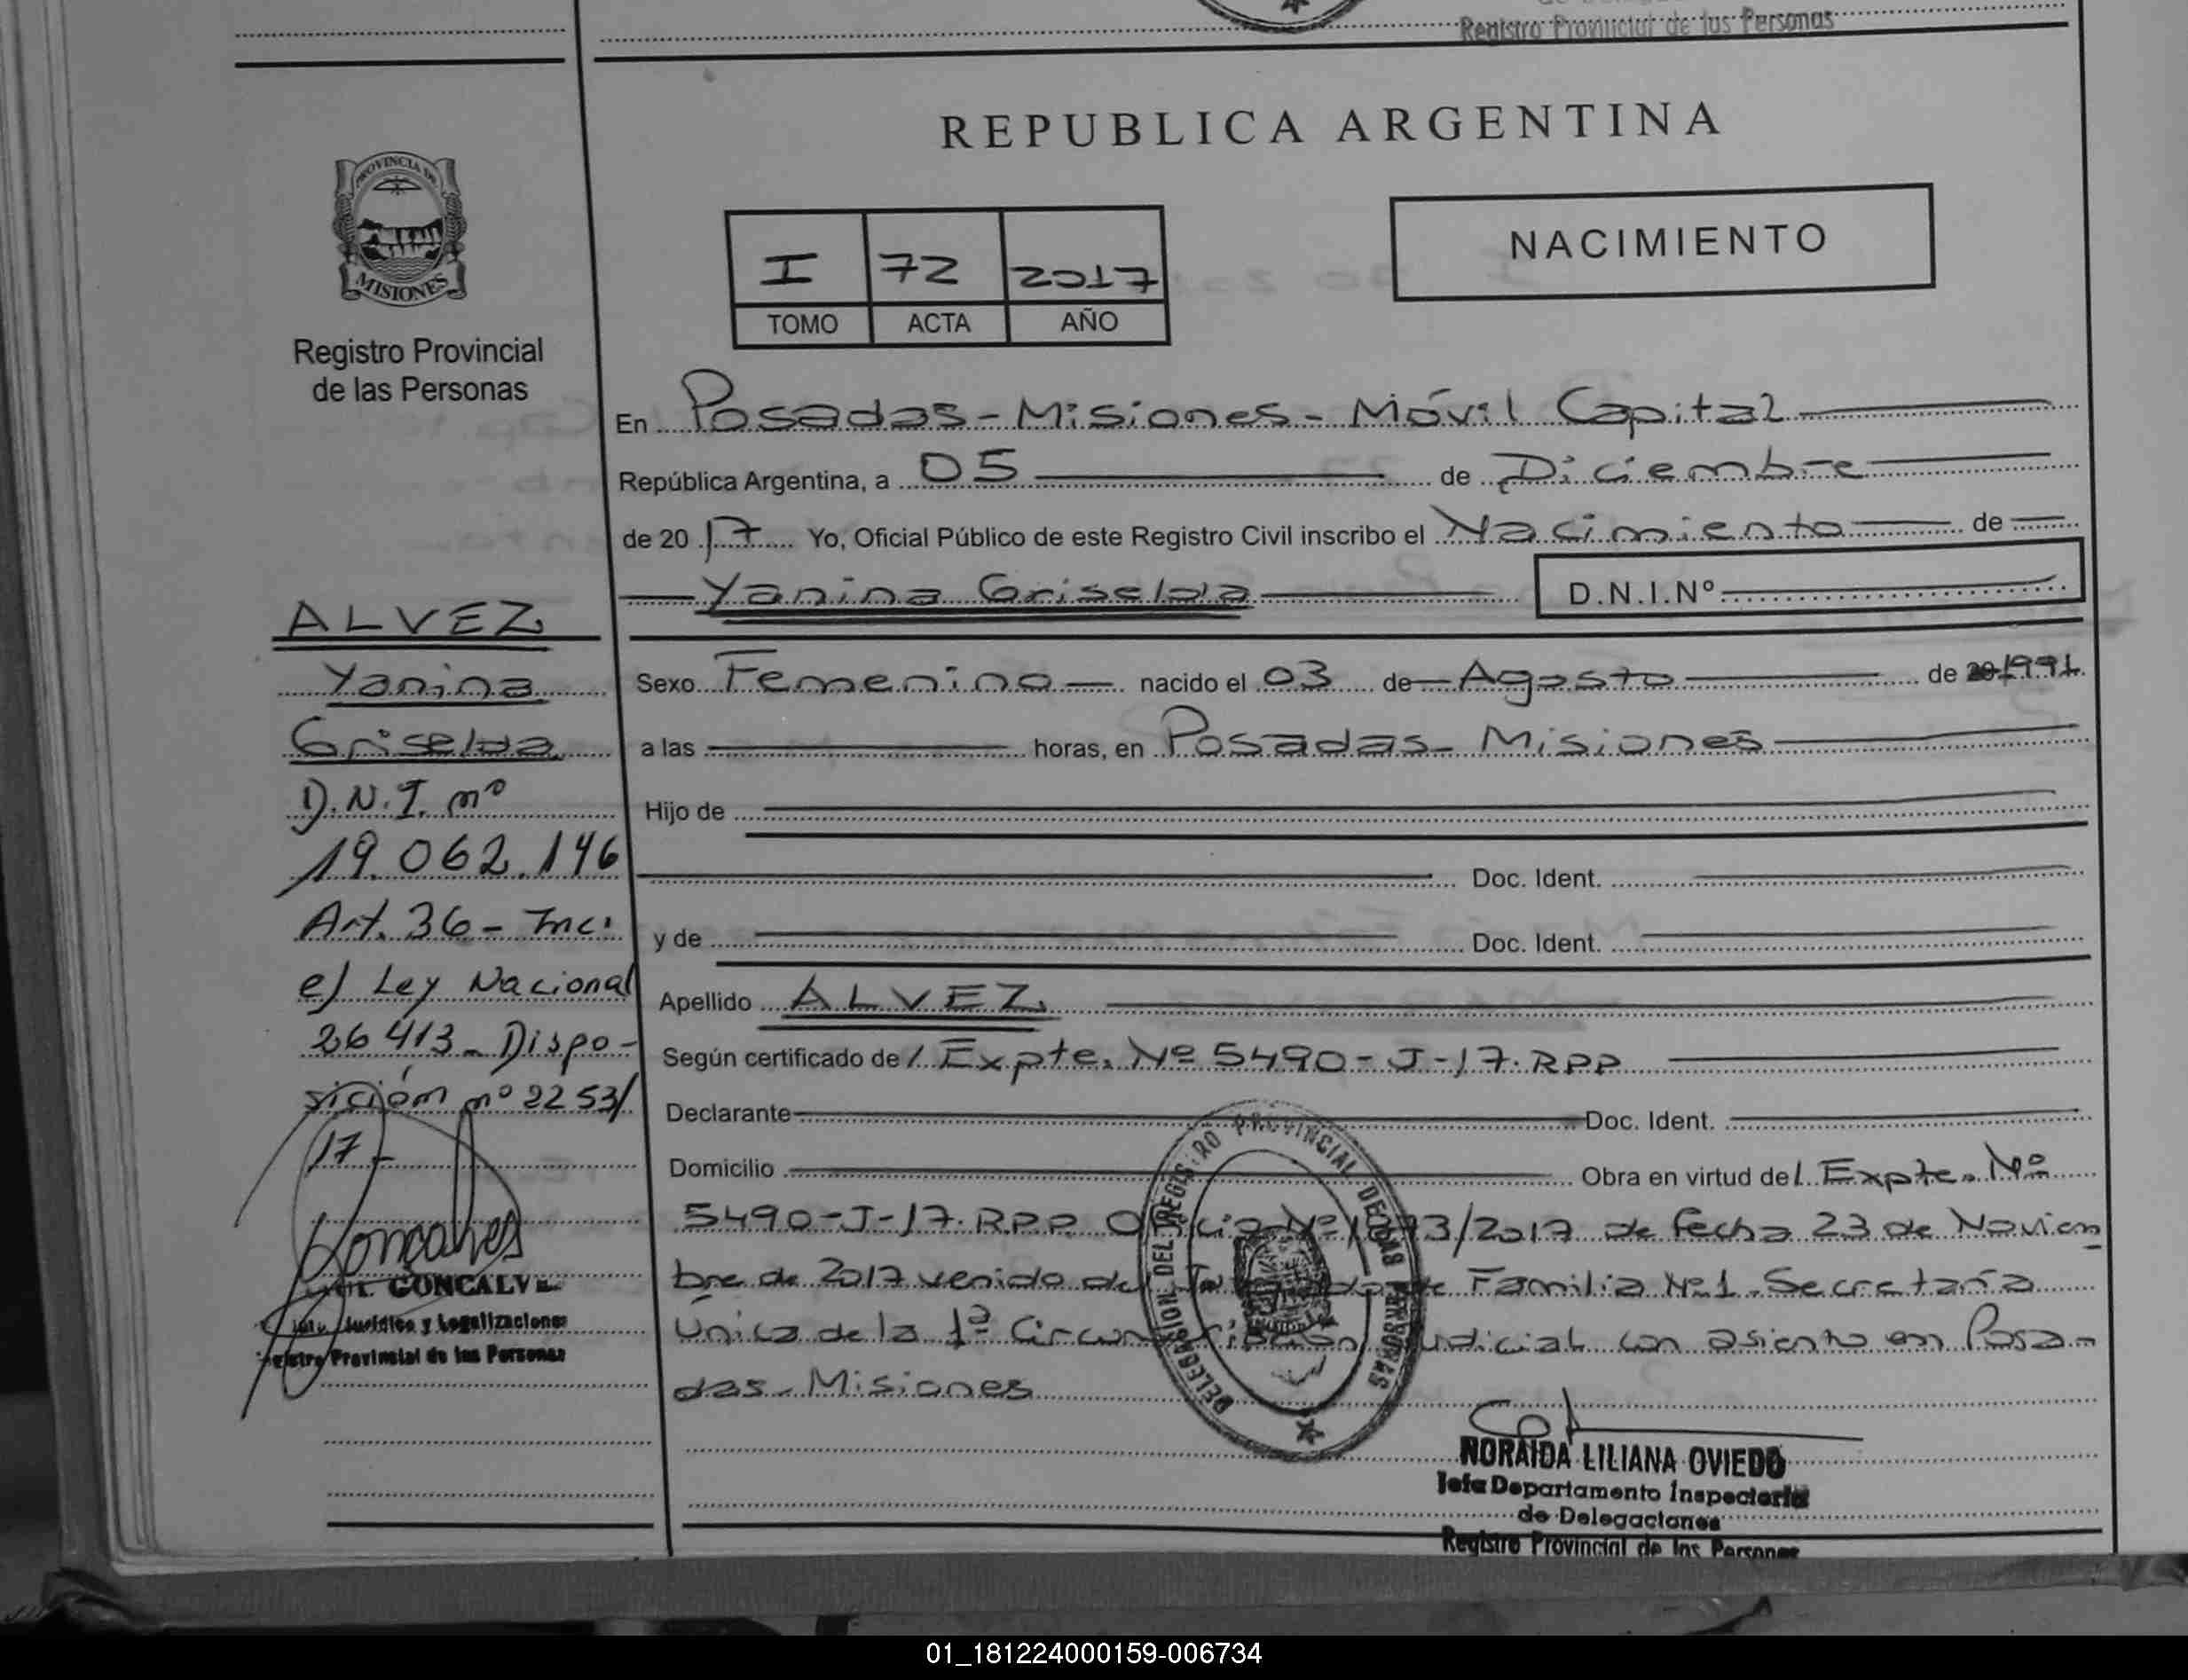 Registro Provincial de las Personas
PROVINCIA DE
MISIONES
Registro Provincial
de las Personas
REPUBLICA ARGENTINA
I 72 2017
TOMO ACTA AÑO
NACIMIENTO
En Posadas - Misiones - Móvil Capital
República Argentina, a 05 de Diciembre
de 2017 Yo, Oficial Público de este Registro Civil inscribo el Nacimiento de
Yanina Griselda D.N.I.Nº
Sexo Femenino nacido el 03 de Agosto de 1991
a las horas, en Posadas - Misiones
Hijo de
Doc. Ident.
y de Doc. Ident.
Apellido ALVEZ
Según certificado de l Expte. Nº 5490-J-17. RPP
Declarante Doc. Ident.
Domicilio Obra en virtud del Expte. Nº
5490-J-17. RPP 93/2017 de fecha 23 de Noviem
bre de 2017 venido del de Familia Nº1. Secretaría
Única de la 1ª Judicial con asiento en Posa-
das - Misiones
ALVEZ
Yanina
Griselda
D.N.I. nº
19.062.146
Art. 36 - Inc:
e) Ley Nacional
26413 - Dispo-
sición nº 2253/
17 -
Goncalves
GONCALVE
Jurídico y Legalizaciones
Registro Provincial de las Personas
DELEGASION DEL REGISTRO PROVINCIAL DE LAS PERSONAS
NORAIDA LILIANA OVIEDO
Jefa Departamento Inspectoria
de Delegaciones
Registro Provincial de las Personas
01_181224000159-006734